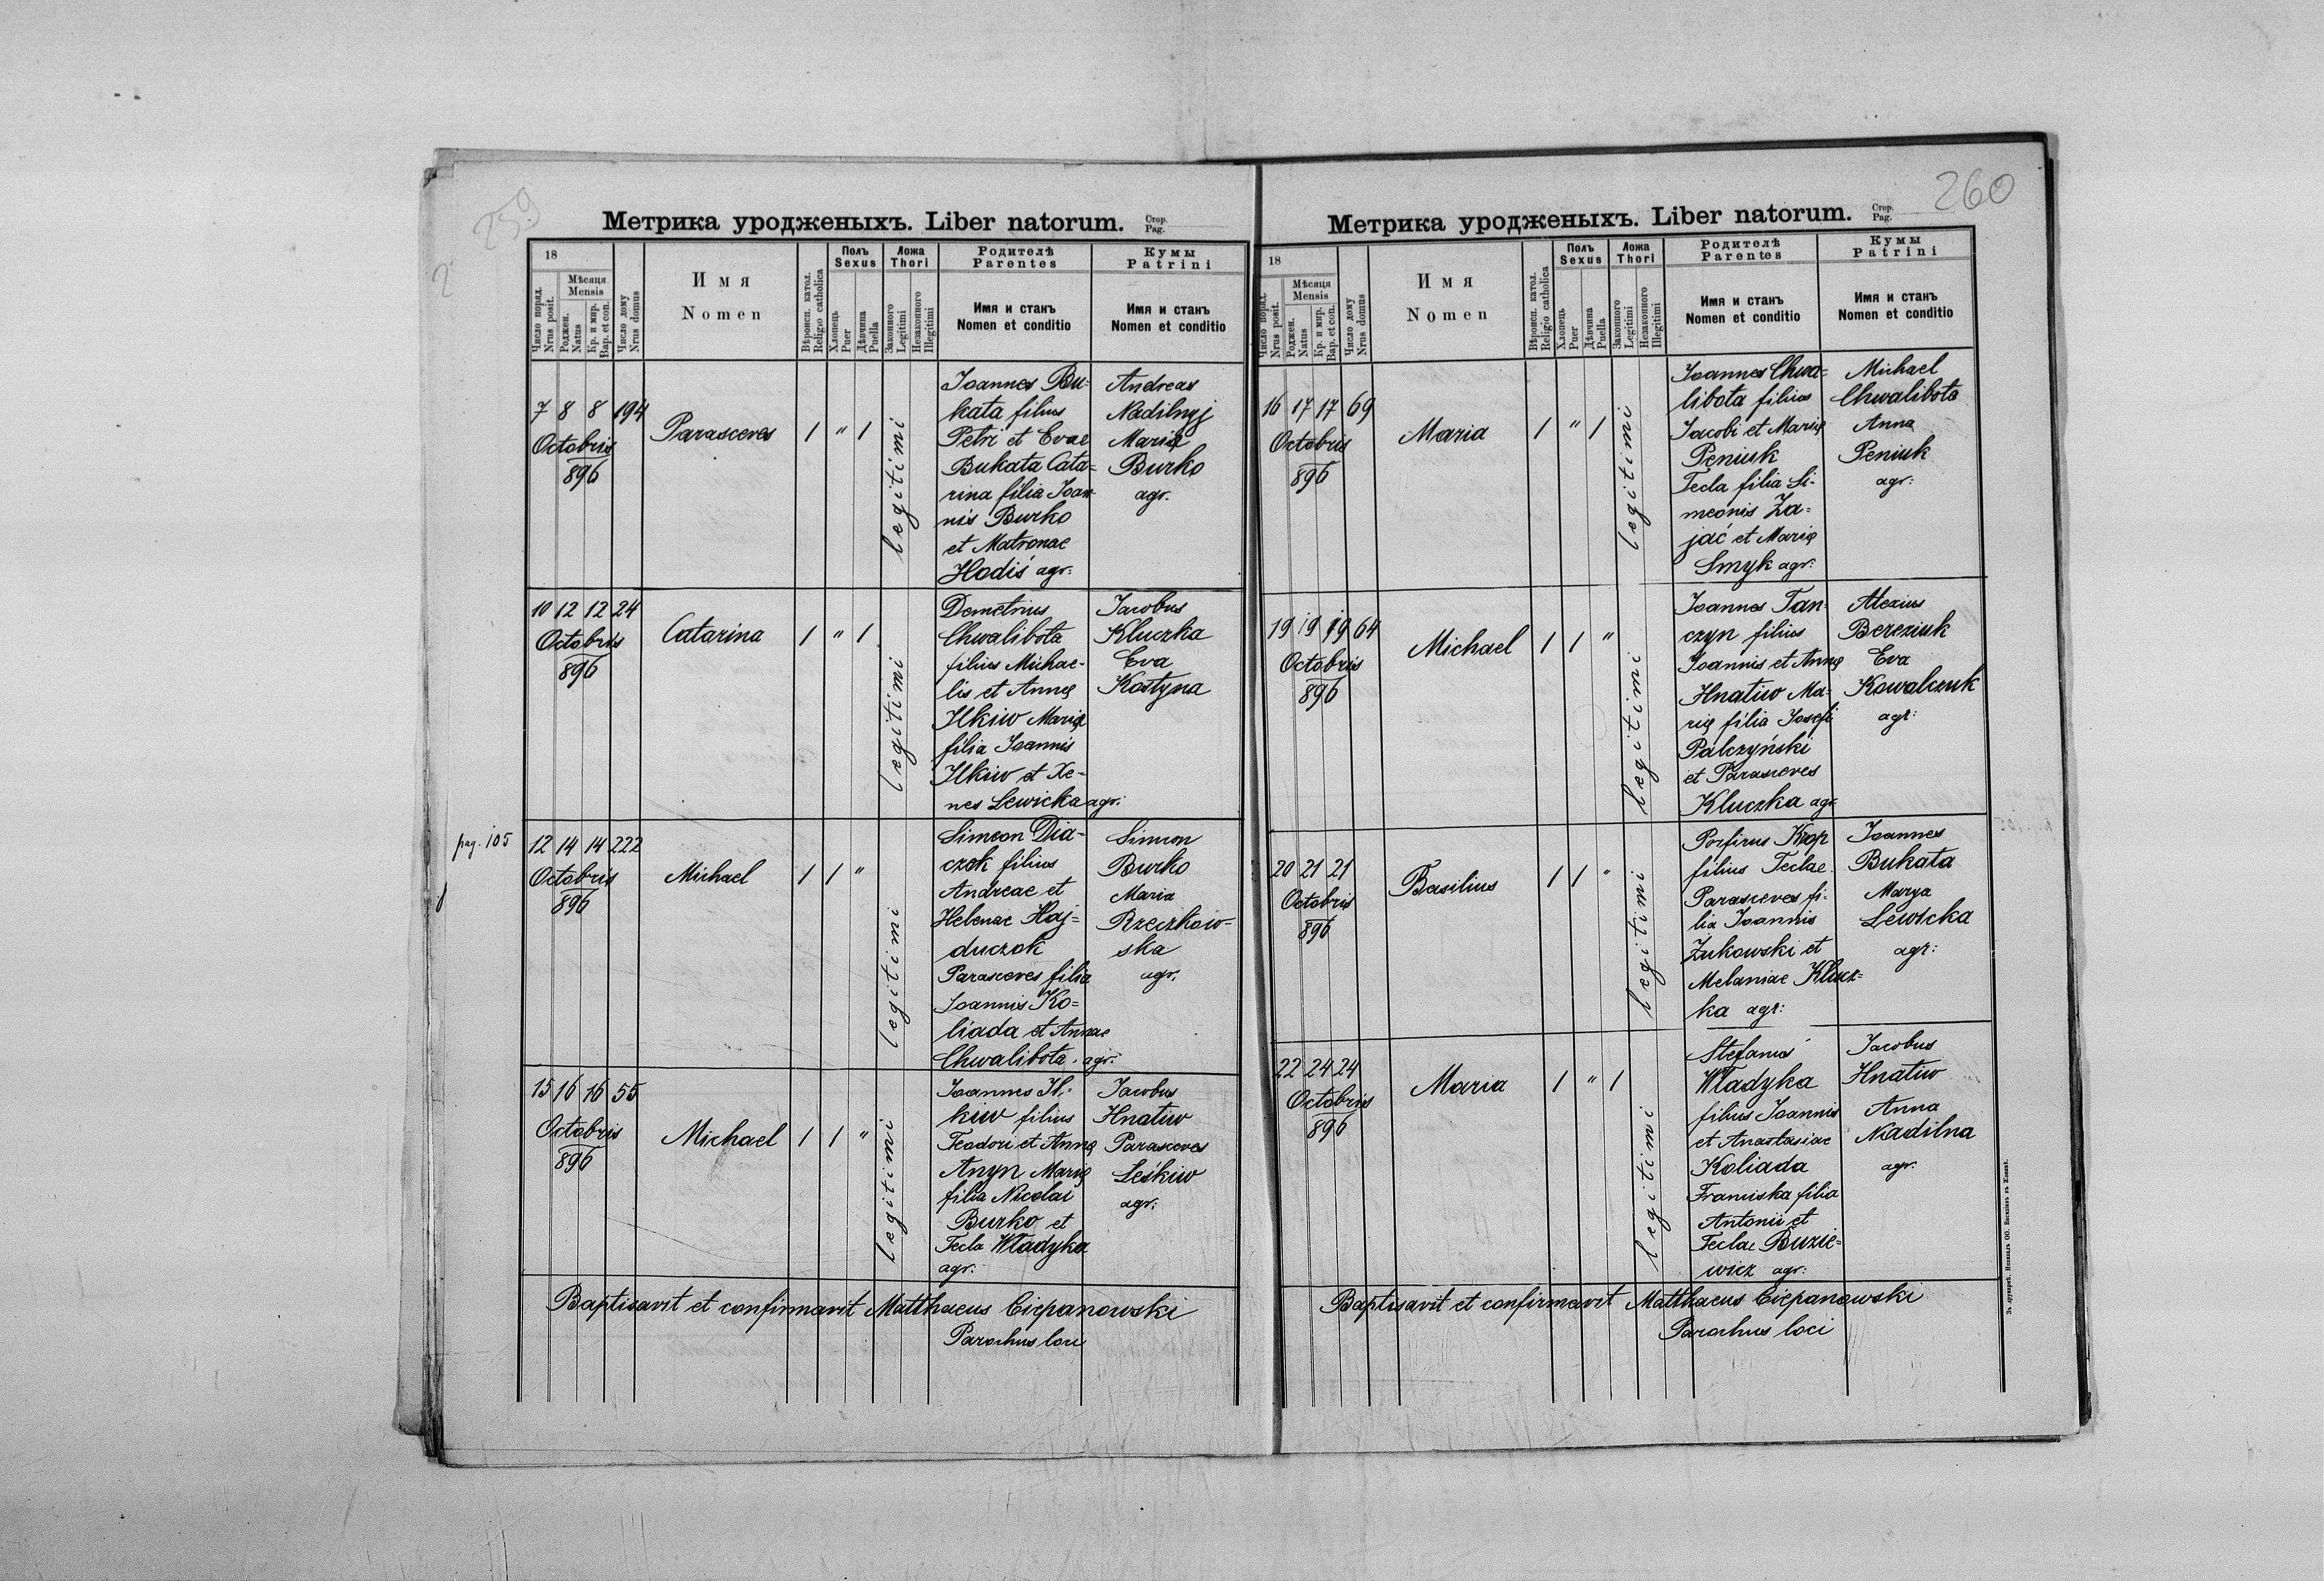 259
Метрика уродженыхъ. Liber natorum. Стор. Pag.
18
Число поряд. Nrus posit.
Мѣсяця Mensis
Роджен. Natus
Кр. и мир. Bap. et con.
Число дому Nrus domus
И м я
N o m e n
Вѣроисп. катол. Religio catholica
Полъ Sexus
Хлопець Puer
Дѣвчина Puella
Ложа Thori
Законного Legitimi
Незаконного Illegitimi
Родителѣ Parentes
Имя и станъ
Nomen et conditio
Кумы Patrini
Имя и станъ
Nomen et conditio
7 8 8 194
Octobris
896
Parasceves
1 " 1
legitimi
Joannes Bu-
kata filius
Petri et Evae
Bukata Cata=
rina filia Joan-
nis Burko
et Matronae
Hodiś agr:
Andreas
Nadilnyj
Maria
Burko
agr.
10 12 12 24
Octobris
896
Catarina
1 " 1
legitimi
Demetrius
Chwalibota
filius Michae-
lis et Annę
Ilkiw Maria
filia Joannis
Ilkiw et Xe-
nes Lewicka agr:
Jacobus
Kluczka
Eva
Kostyna
pag. 105
12 14 14 222
Octobris
896
Michael
1 1 "
legitimi
Simeon Dia-
czok filius
Andreae et
Helenae Haj=
duczok
Parasceves filia
Joannis Ko=
liada et Annae
Chwalibota agr:
Simeon
Burko
Maria
Rzeczkow-
ska
agr.
15 16 16 55
Octobris
896
Michael
1 1 "
legitimi
Joannes Il-
kiw filius
Teodori et Annę
Anyn Marię
filia Nicolai
Burko et
Tecla Władyka
agr.
Jacobus
Hnatiw
Parasceves
Leśkiw
agr:
Baptisavit et confirmavit Matthaeus Ciepanowski
Parochus loci
260
Метрика уродженыхъ. Liber natorum. Стор. Pag.
18
Число поряд. Nrus posit.
Мѣсяця Mensis
Роджен. Natus
Кр. и мир. Bap. et con.
Число дому Nrus domus
И м я
N o m e n
Вѣроисп. катол. Religio catholica
Полъ Sexus
Хлопець Puer
Дѣвчина Puella
Ложа Thori
Законного Legitimi
Незаконного Illegitimi
Родителѣ Parentes
Имя и станъ
Nomen et conditio
Кумы Patrini
Имя и станъ
Nomen et conditio
16 17 17 69
Octobris
896
Maria
1 " 1
legitimi
Joannes Chwa=
libota filius
Jacobi et Marię
Peniuk
Tecla filia Si-
meonis Za=
jać et Marię
Smyk agr:
Michael
Chwalibota
Anna
Peniuk
agr:
19 19 19 64
Octobris
896
Michael
1 1 "
legitimi
Joannes Tan-
czyn filius
Joannis et Annę
Hnatiw Ma-
rię filia Josefi
Palczyński
et Parasceves
Kluczka agr.
Alexius
Bereziuk
Eva
Kowalczuk
agr:
20 21 21
Octobris
896
Basilius
1 1 "
legitimi
Porfirus Krop
filius Teclae
Parasceves fi-
lia Joannis
Żukowski et
Melaniae Klucz=
ka agr:
Joannes
Bukata
Marya
Lewicka
agr:
22 24 24
Octobris
896
Maria
1 " 1
legitimi
Stefanus
Władyka
filius Joannis
et Anastasiae
Koliada
Franciska filia
Antonii et
Teclae Buzie=
wicz agr:
Jacobus
Hnatiw
Anna
Nadilna
agr.
Baptisavit et confirmavit Matthaeus Ciepanowski
Parochus loci